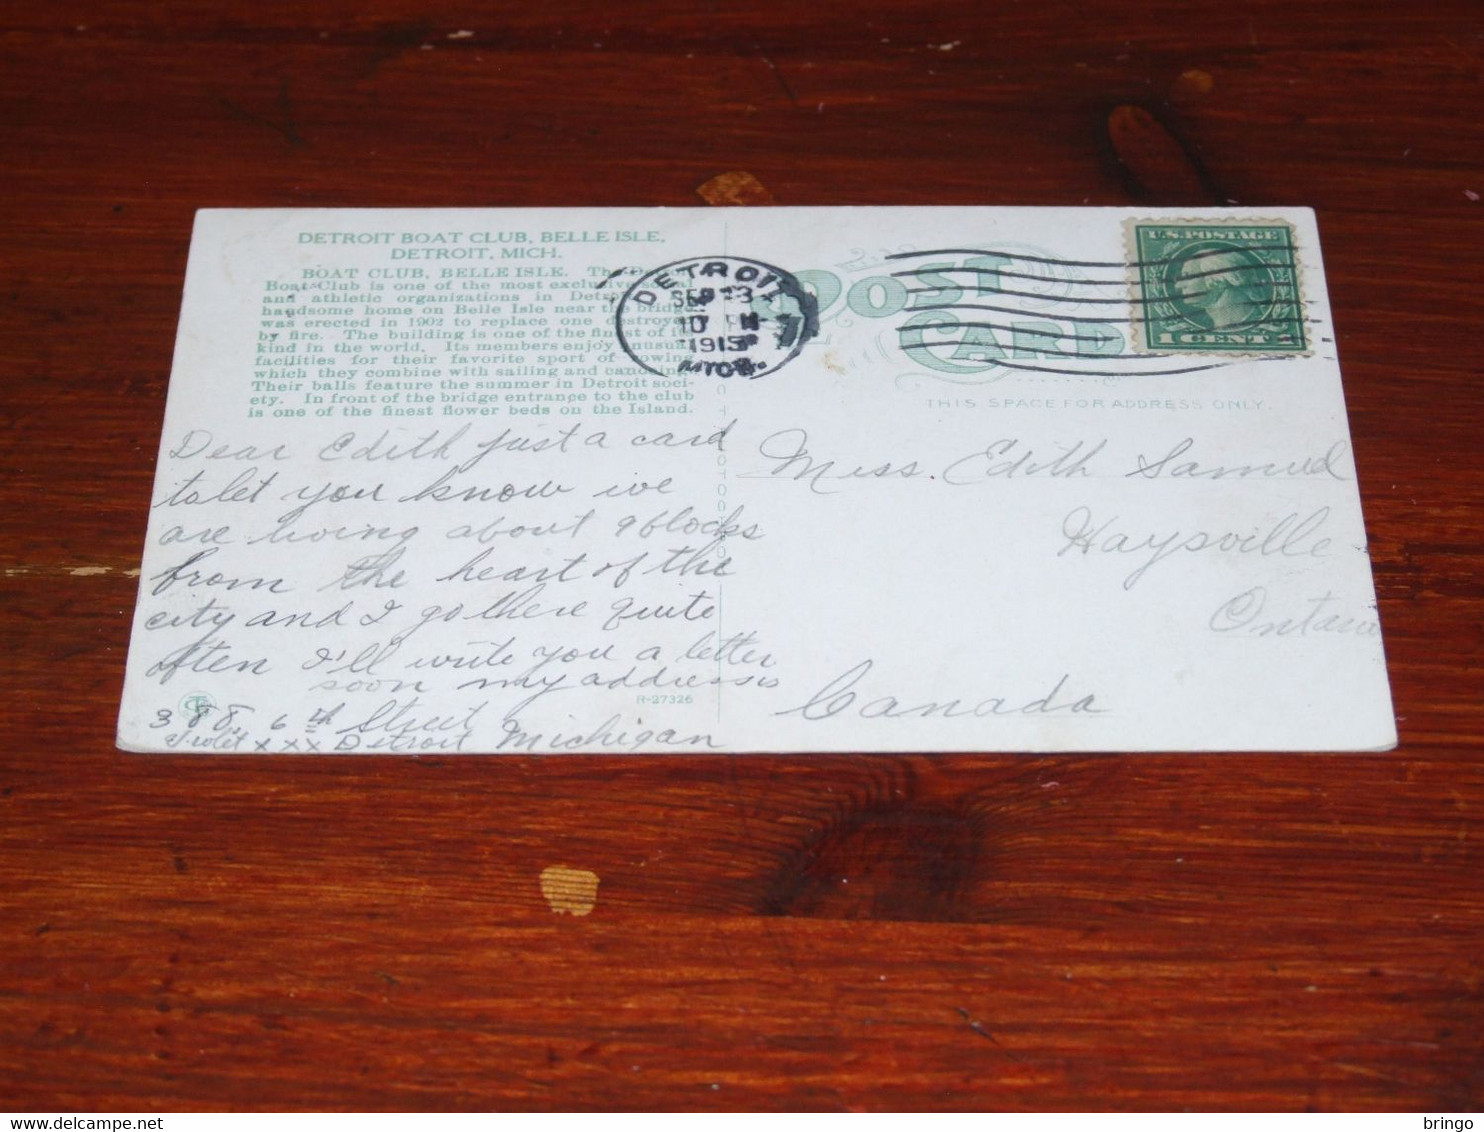 DETROIT BOAT CLUB, BELLE ISLE,
DETROIT, MICH.
BOAT CLUB, BELLE ISLE. The
Boat Club is one of the most exclusive social
and athletic organizations in
handsome home on Belle Isle near the bridge
was erected in 1902 to replace one destroyed
by fire. The building is one of the finest of its
kind in the world. Its members enjoy unusual
facilities for their favorite sport of rowing
which they combine with sailing and canoeing.
Their balls feature the summer in Detroit soci-
ety. In front of the bridge entrance to the club
is one of the finest flower beds on the Island.
DETROIT
SEP
10 PM
1915
MICH.
POST
CARD
U.S. POSTAGE
1 CENT
THIS SPACE FOR ADDRESS ONLY.
Dear Edith just a card
to let you know we
are living about 9 blocks
from the heart of the
city and I go there quite
often I'll write you a letter
soon my address is
388, 6th Street
Violet xxx Detroit Michigan
R-27326
Miss. Edith Samuel
Haysville
Ontario
Canada
bringo